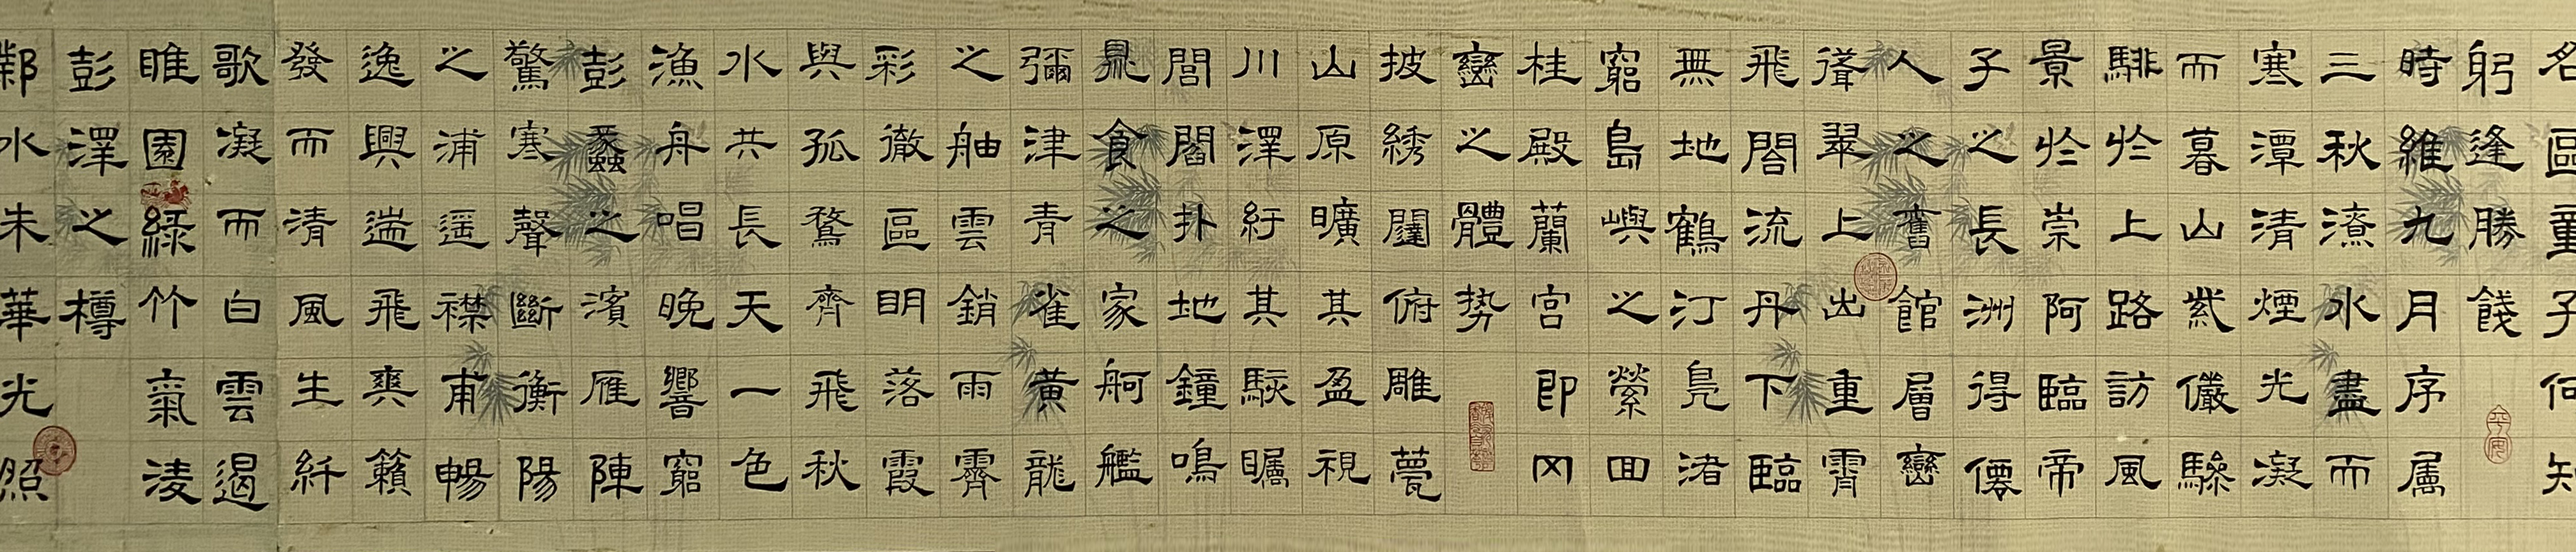 名區童子何知
躬逢勝餞
時維九月序屬
三秋潦水盡而
寒潭清煙光凝
而暮山紫儼驂
騑於上路訪風
景於崇阿臨帝
子之長洲得僊
人之舊館層巒
聳翠上出重霄
飛閣流丹下臨
無地鶴汀鳧渚
窮島嶼之縈囬
桂殿蘭宮即冈
巒之體势
披綉闥俯雕甍
山原曠其盈視
川澤紆其駭矚
閭閻扑地鐘鳴
鼎食之家舸艦
彌津青雀黃龍
之舳雲銷雨霽
彩徹區明落霞
與孤鶩齊飛秋
水共長天一色
漁舟唱晚響窮
彭蠡之濱雁陣
驚寒聲斷衡陽
之浦遥襟甫暢
逸興遄飛爽籟
發而清風生纤
歌凝而白雲遏
睢園緑竹氣凌
彭澤之樽
鄴水朱華光照